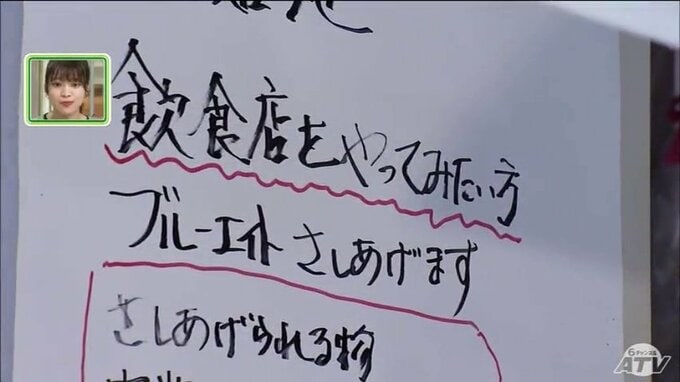 飲食店をやってみたい方
ブルーエイト さしあげます
さしあげられる物
6チャンネル
ATV